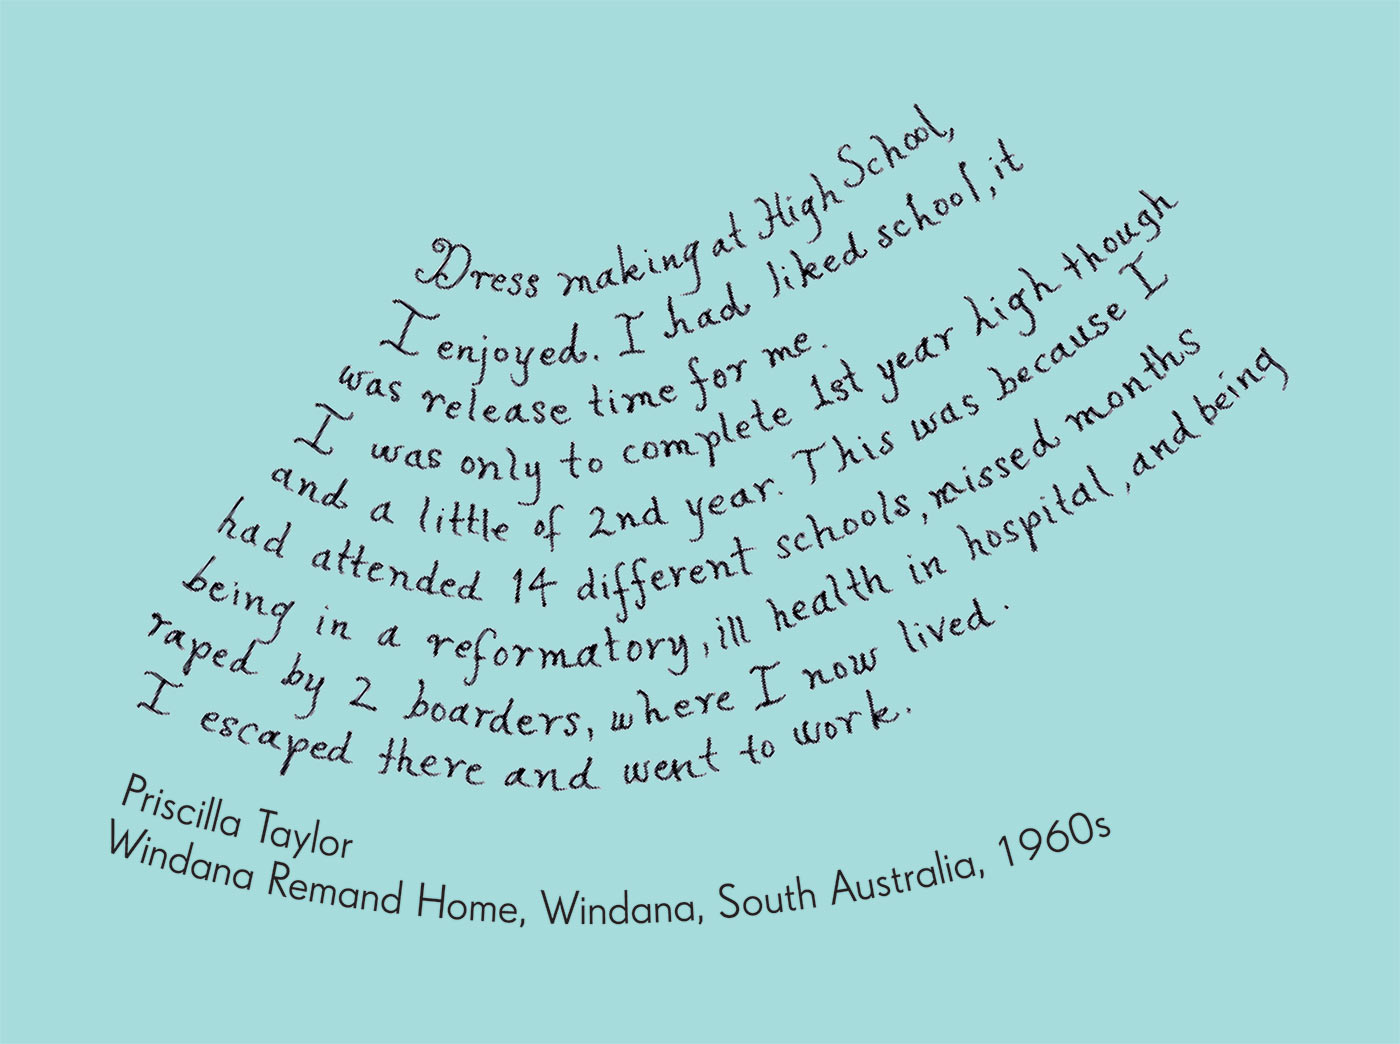 Dress making at High School,
I enjoyed. I had liked school, it
was release time for me.
I was only to complete 1st year high though
and a little of 2nd year. This was because I
had attended 14 different schools, missed months
being in a reformatory, ill health in hospital, and being
raped by 2 boarders, where I now lived.
I escaped there and went to work.
Priscilla Taylor
Windana Remand Home, Windana, South Australia, 1960s